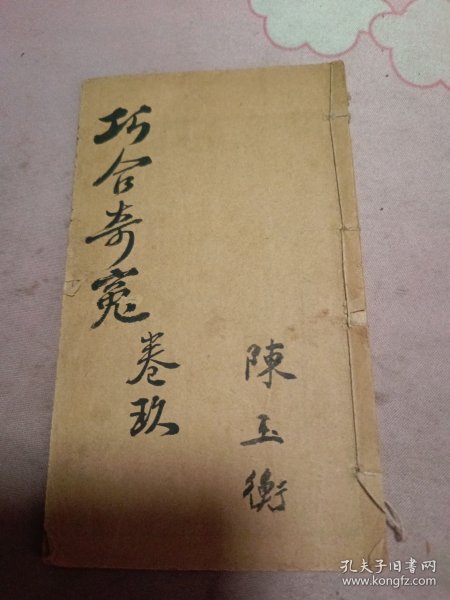 巧合奇冤
卷玖
陳玉衡
孔夫子旧书网
www.kongfz.com